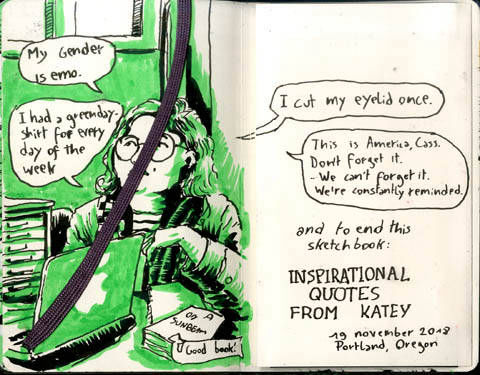 My Gender
is emo.
I had a greenday-
shirt for every
day of the
week
ON A
SUNBEAM
Good book!
I cut my eyelid once.
This is America, Cass.
Don't forget it.
- We can't forget it.
We're constantly reminded.
and to end this
sketchbook:
INSPIRATIONAL
QUOTES
FROM KATEY
19 november 2018
Portland, Oregon